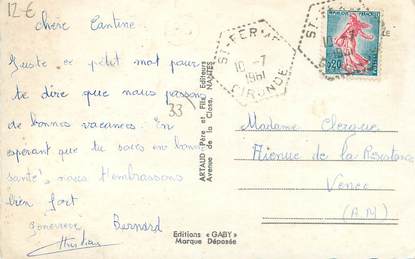 12€
chère Cantine
Juste ce petit mot pour
te dire que nous passons
de bonnes vacances. En
espérant que tu sois en bonne
santé, nous t'embrassons
bien fort
Geneviève Bernard
Christian
33
ARTAUD Père et Fils, Editeurs
Avenue de la Close, NANTES
Editions « GABY »
Marque Déposée
ST-FERME
10-7
1961
GIRONDE
0,20
Madame Clergue
Avenue de la Résistance
Vence
(A.M)